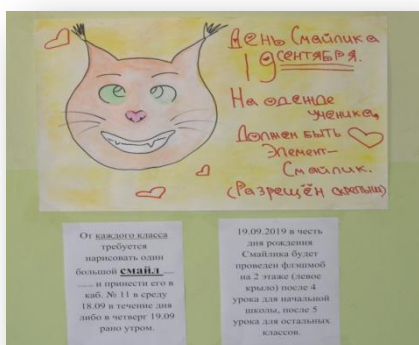 День Смайлика
19 сентября.
На одежде
ученика
должен быть
Элемент-
Смайлик.
(Разрещён скетыш)
От каждого класса
требуется
нарисовать один
большой смайл
и принести его в
каб. № 11 в среду
18.09 в течение дня
либо в четверг 19.09
рано утром.
19.09.2019 в честь
дня рождения
Смайлика будет
проведен флэшмоб
на 2 этаже (левое
крыло) после 4
урока для начальной
школы, после 5
урока для остальных
классов.